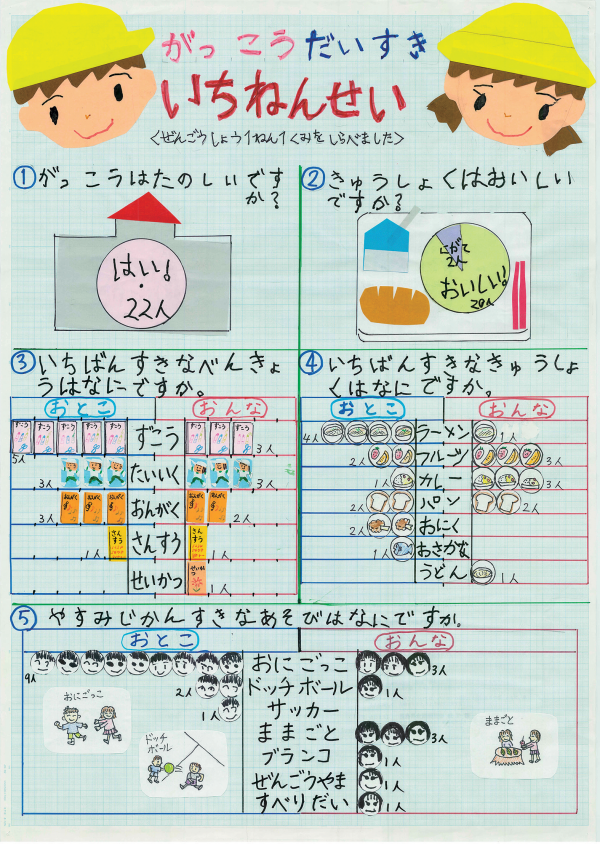 がっこうだいすき
いちねんせい
<ぜんごうしょう1ねん1くみをしらべました>
①がっこうはたのしいです
か?
はい!
22人
②きゅうしょくはおいしい
ですか?
にがて
2人
おいしい!
20人
③いちばんすきなべんきょ
うはなにですか。
おとこ おんな
ずこう ずこう ずこう ずこう ずこう ずこう ずこう ずこう ずこう
5人 3人
3人 たいいく 3人
3人 おんがく おんがく おんがく おんがく 2人
1人 さんすう さんすう さんすう
せいかつ せいかつ 1人
④いちばんすきなきゅうしょ
くはなにですか。
おとこ おんな
4人 ラーメン 1人
2人 フルーツ 3人
1人 カレー 3人
2人 パン 2人
2人 おにく
1人 おさかな
うどん 1人
⑤やすみじかんすきなあそびはなにですか。
おとこ おんな
9人 おにごっこ 3人
2人 ドッチボール 1人
1人 サッカー
ままごと 3人
ブランコ 1人
ぜんごうやま 1人
すべりだい 1人
おにごっこ
ドッチ
ボール
ままごと